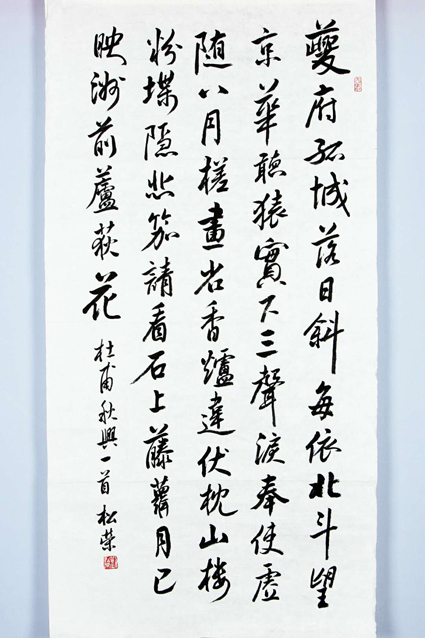 夔府孤城落日斜每依北斗望
京華聽猿實下三聲淚奉使虛
随八月槎畫省香爐違伏枕山樓
粉堞隱悲笳請看石上藤蘿月已
映洲前蘆荻花
杜甫秋興一首松荣